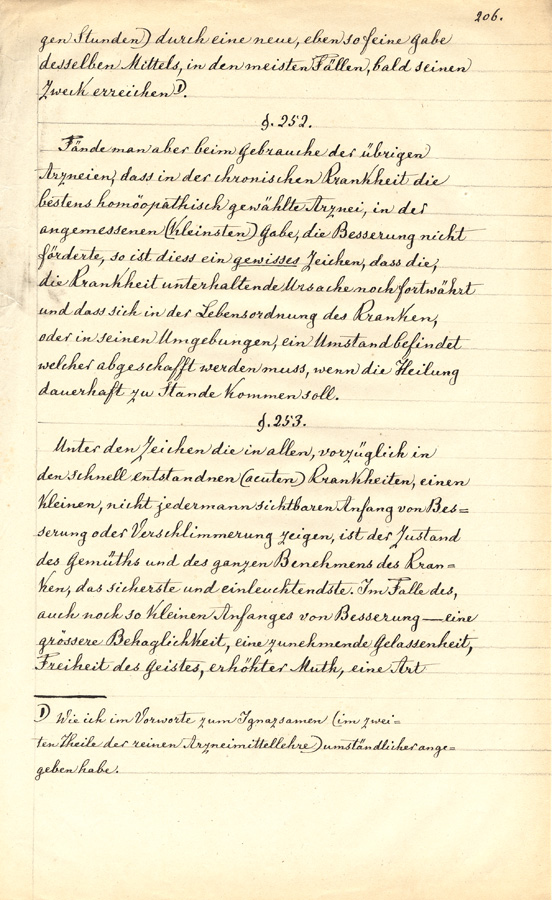 206.
gen Stunden) durch eine neue, eben so feine Gabe
desselben Mittels, in den meisten Fällen, bald seinen
Zweck erreichen 1).
§. 252.
Fände man aber beim Gebrauche der übrigen
Arzneien, dass in der chronischen Krankheit die
bestens homöopathisch gewählte Arznei, in der
angemessenen (kleinsten) Gabe, die Besserung nicht
förderte, so ist diess ein gewisses Zeichen, dass die,
die Krankheit unterhaltende Ursache noch fortwährt
und dass sich in der Lebensordnung des Kranken,
oder in seinen Umgebungen, ein Umstand befindet
welcher abgeschafft werden muss, wenn die Heilung
dauerhaft zu Stande kommen soll.
§. 253.
Unter den Zeichen die in allen, vorzüglich in
den schnell entstandnen (acuten) Krankheiten, einen
kleinen, nicht jedermann sichtbaren Anfang von Bes=
serung oder Verschlimmerung zeigen, ist der Zustand
des Gemüths und des ganzen Benehmens des Kran=
ken, das sicherste und einleuchtendste. Im Falle des,
auch noch so kleinen Anfanges von Besserung — eine
grössere Behaglichkeit, eine zunehmende Gelassenheit,
Freiheit des Geistes, erhöhter Muth, eine Art
1) Wie ich im Vorworte zum Ignazsamen (im zwei=
ten Theile der reinen Arzneimittellehre) umständlicher ange=
geben habe.